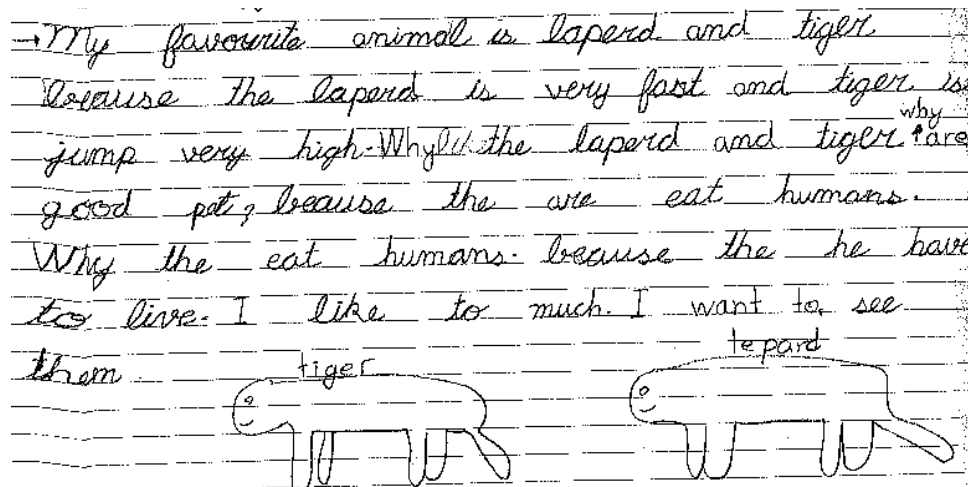 →My favourite animal is laperd and tiger
because the laperd is very fast and tiger is
why
jump very high. Why the laperd and tiger are
good pet? beause the are eat humans.
Why the eat humans. beause the he have
to live. I like to much. I want to see
them.
tiger
tepard